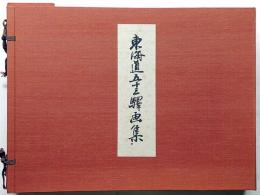 東海道五十三驛画集